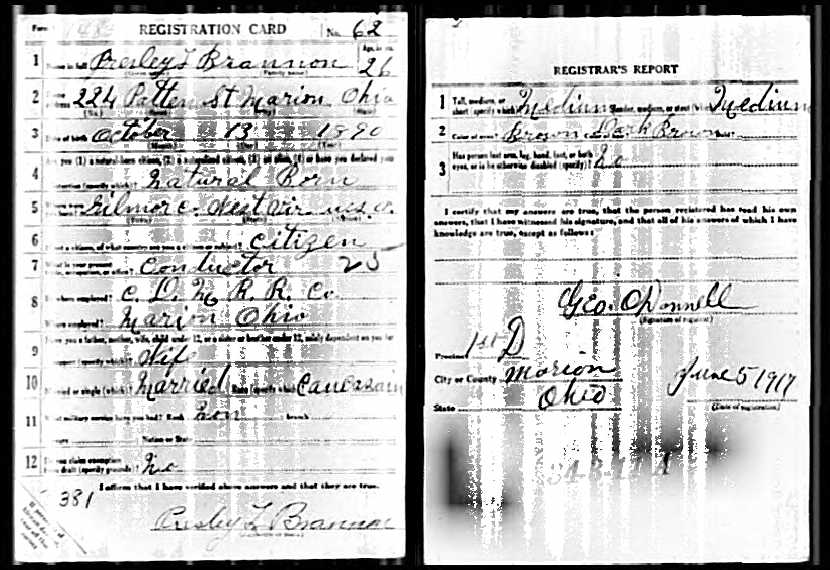 Form 1 REGISTRATION CARD No. 62
1 Name in full Presley L Brannon Age, in yrs. 26
(Given name) (Family name)
2 Home address 224 Patten St Marion Ohio
(No.) (Street) (City) (State)
3 Date of birth October 13 1890
(Month) (Day) (Year)
4 Are you (1) a natural-born citizen, (2) a naturalized citizen, (3) an alien, (4) or have you declared your
intention (specify which)? Natural Born
5 Gilmor c. West Vir U.S.A.
(Town) (State) (Nation)
6 If not a citizen, of what country are you a citizen or subject? Citizen
7 What is your present trade, occupation, or office? Conductor 25
8 By whom employed? C. D. M R. R. Co.
Where employed? Marion Ohio
9 Have you a father, mother, wife, child under 12, or a sister or brother under 12, solely dependent on you for
support (specify which)? Wife
10 Married or single (which)? Married Race (specify which)? Caucasain
11 What military service have you had? Rank non branch
years Nation or State
12 Do you claim exemption
from draft (specify grounds)? No
I affirm that I have verified above answers and that they are true.
381
Presley L Brannon
REGISTRAR'S REPORT
1 Tall, medium, or
short (specify which)? Medium Slender, medium, or stout (which)? Medium
2 Color of eyes? Brown Dark Brown Bald?
3 Has person lost arm, leg, hand, foot, or both
eyes, or is he otherwise disabled (specify)? No
I certify that my answers are true, that the person registered has read his own
answers, that I have witnessed his signature, and that all of his answers of which I have
knowledge are true, except as follows:
Geo. O'Donnell
(Signature of registrar)
Precinct 1st D
City or County Marion
State Ohio
June 5 1917
(Date of registration)